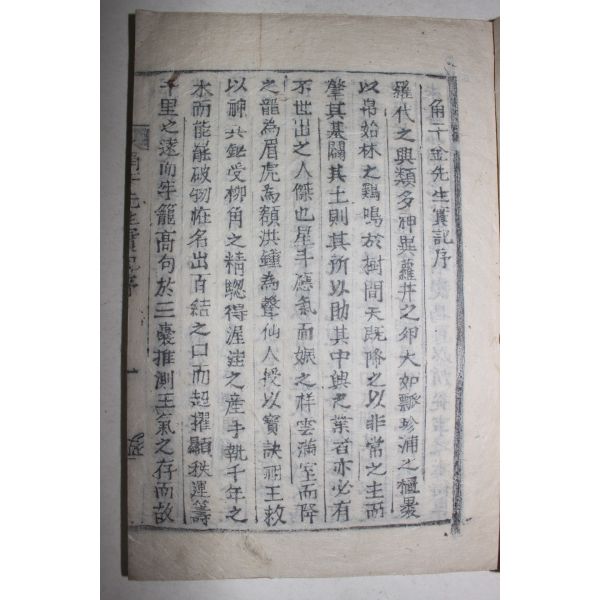 角干金先生實記序
羅代之興類多神異蘿井之卵大如瓢珍浦之櫃曇
以帛始林之鷄鳴於樹間天旣降之以非常之主而
肇其基闢其土則其所以助其中興之業者亦必有
不世出之人傑也星斗應氣而娠之祥雲滿室而降
之龍為眉虎為額洪鍾為聲仙人授以寶訣神王敕
以神兵鉛受柳角之精驄得渥洼之産手執千年之
木而能破物恠名出百結之口而超擢顯秩運籌
千里之遠而牢籠高句於三嚢推測王氣之存而故
角干先生實記序
一